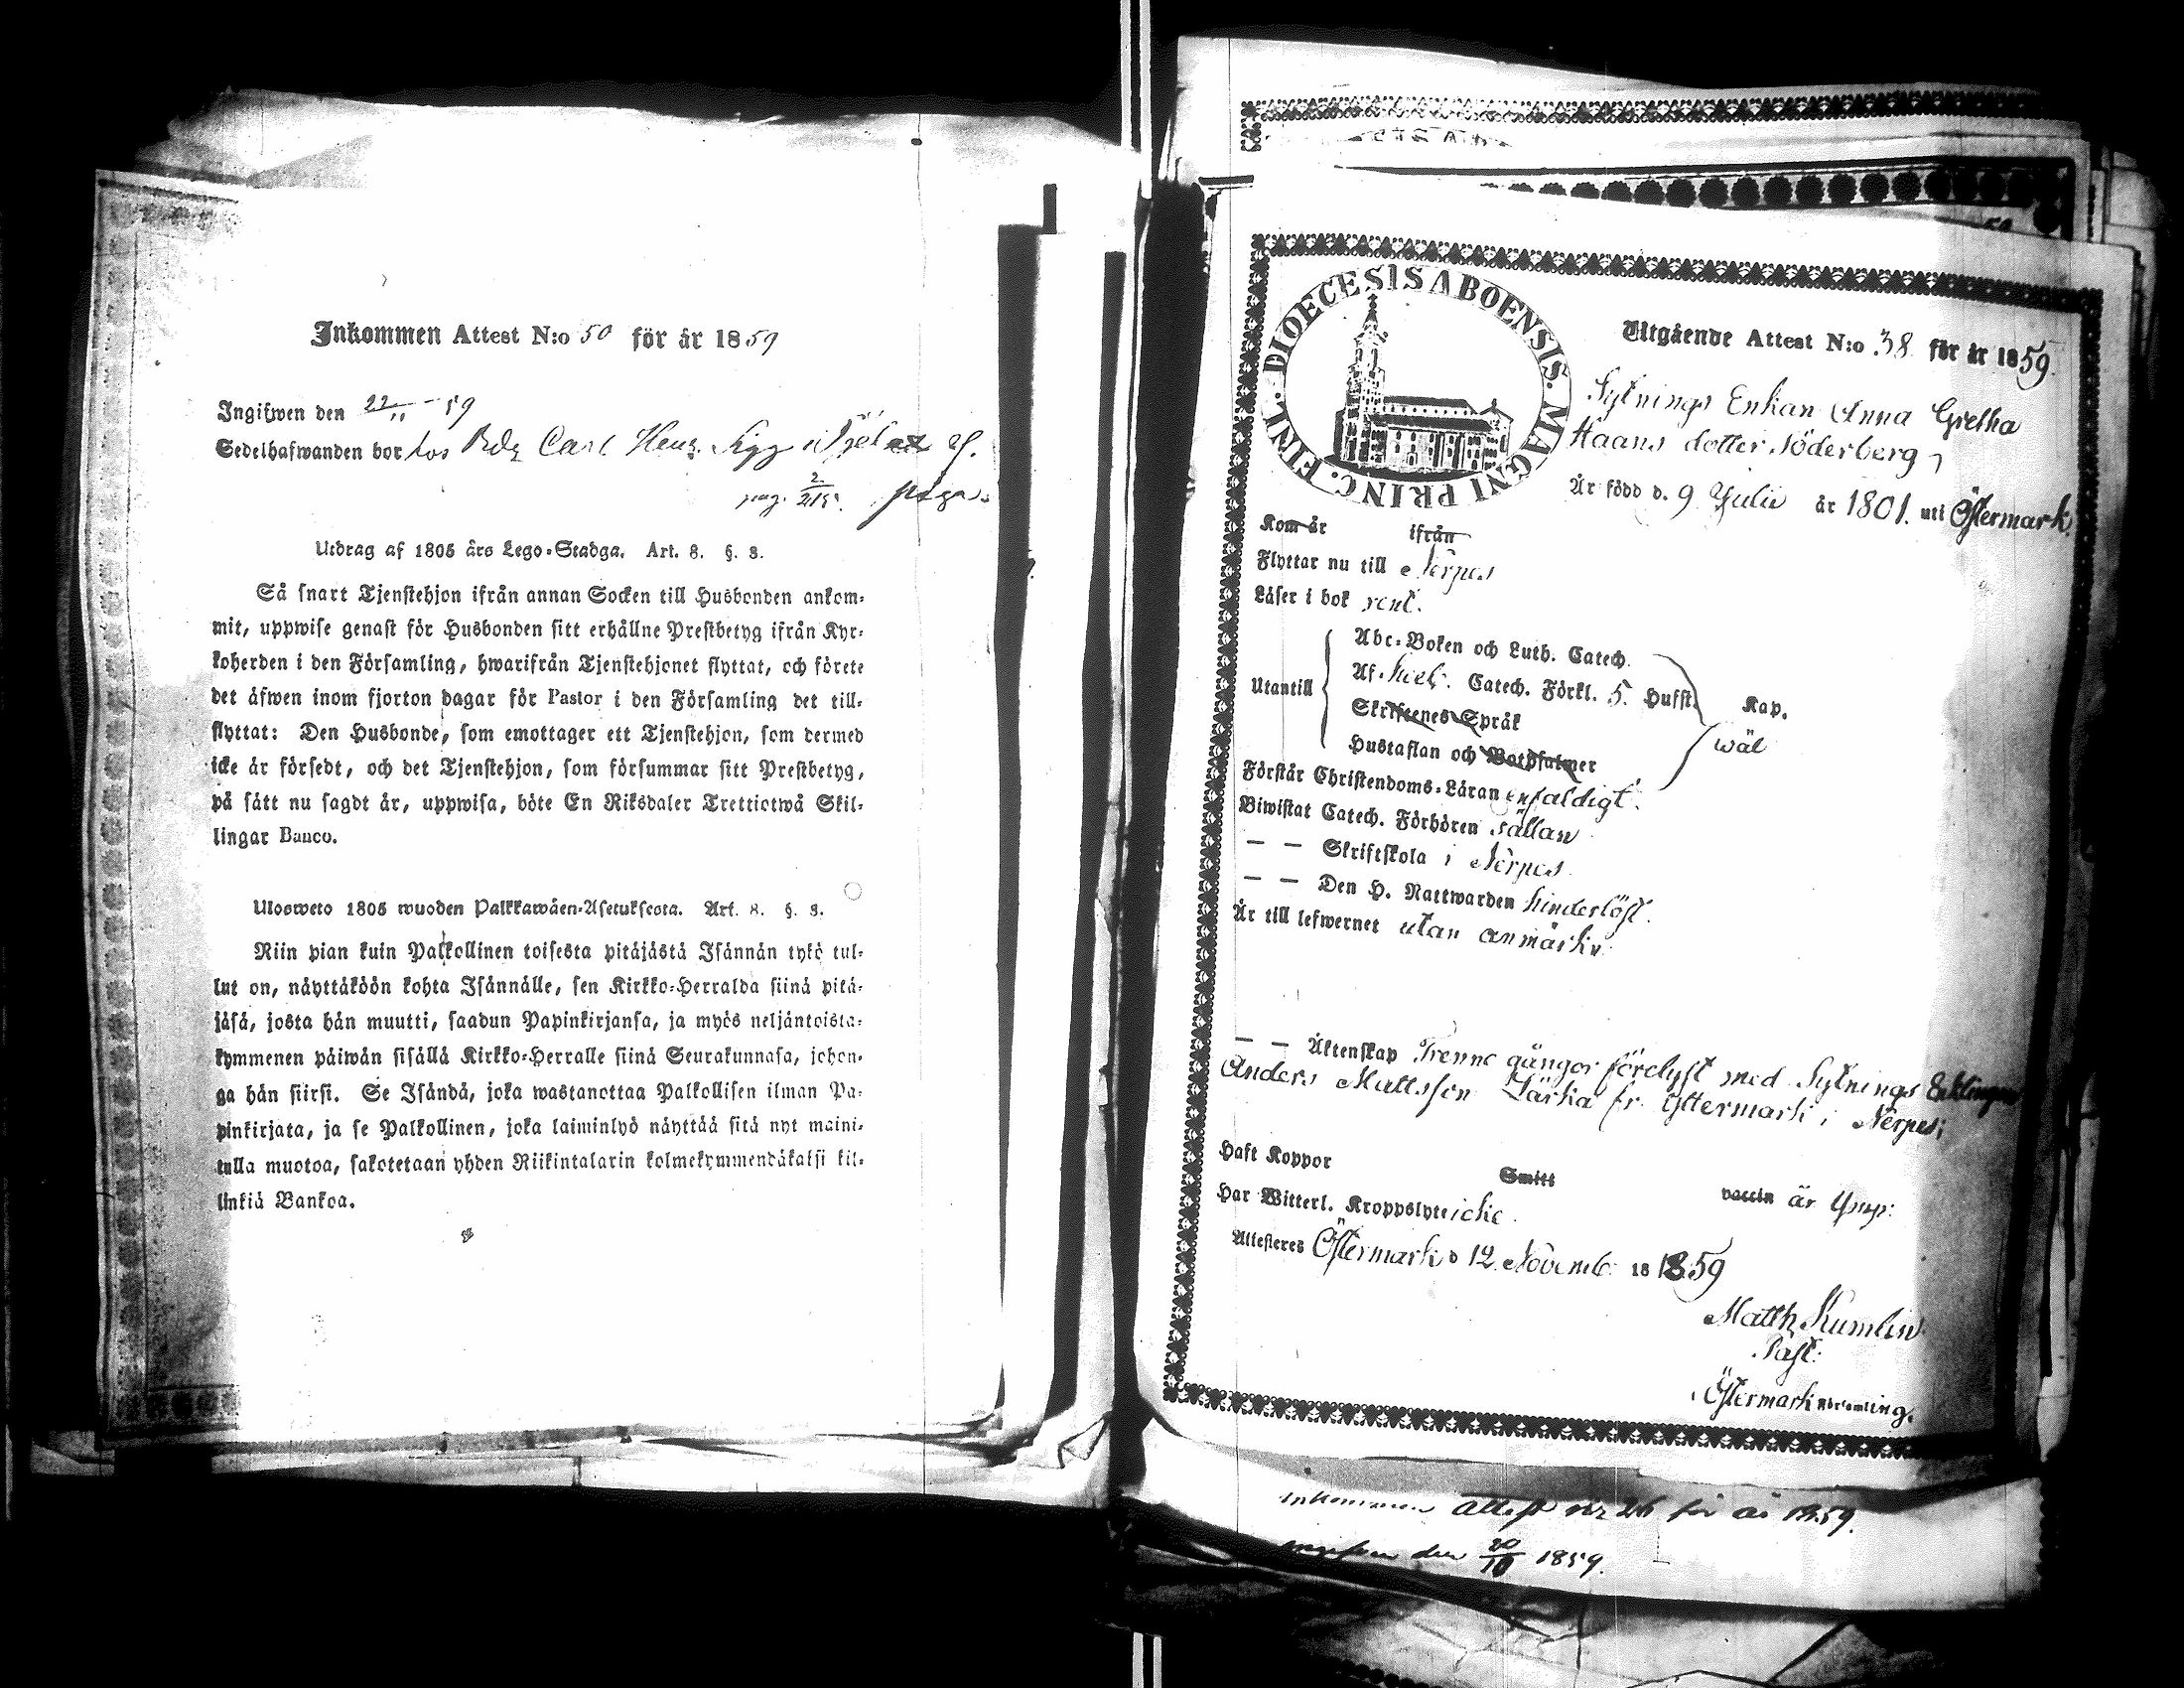 Inkommen Attest N:o 50 för år 1859
Ingifwen den 22/11 - 59
Sedelhafwanden bor hos Carl
pag. 2/215.
Utdrag af 1805 års Lego-Stadga. Art. 8. §. 3.
Så snart Tjenstehjon ifrån annan Socken till Husbonden ankom-
mit, uppwise genast för Husbonden sitt erhållne Prestbetyg ifrån Kyr-
koherden i den Församling, hwarifrån Tjenstehjonet flyttat, och förete
det äfwen inom fjorton dagar för Pastor i den Församling det till-
flyttat: Den Husbonde, som emottager ett Tjenstehjon, som dermed
icke är försedt, och det Tjenstehjon, som försummar sitt Prestbetyg,
på sätt nu sagdt är, uppwisa, böte En Riksdaler Trettiotwå Skil-
lingar Banco.
Ulosweto 1805 wuoden Palkkawäen-Asetuksesta. Art. 8. §. 3.
Niin pian kuin Palkollinen toisesta pitäjästä Isännän tykö tul-
lut on, näyttäköön kohta Isännälle, sen Kirkko-Herralda siinä pitä-
jäsä, josta hän muutti, saadun Papinkirjansa, ja myös neljäntoista-
kymmenen päiwän sisällä Kirkko-Herralle siinä Seurakunnasa, johon-
ga hän siirsi. Se Isändä, joka wastanottaa Palkollisen ilman Pa-
pinkirjata, ja se Palkollinen, joka laiminlyö näyttää sitä nyt maini-
tulla muotoa, sakotetaan yhden Riikintalarin kolmekymmendäkaksi kil-
linkiä Bankoa.
DIOECESIS ABOENSIS. MAGNI PRINC. FINL.
Utgående Attest N:o 38 för år 1859.
Sytnings Enkan Anna Gretha
Haans dotter Söderberg
Är född d. 9 Julii år 1801. uti Östermark
Kom år ifrån
Flyttar nu till Nerpes
Läser i bok rent.
Utantill
Abc-Boken och Luth. Catech.
Af Catech. Förkl. 5. Hufst. Kap.
Skriftenes Språk
wäl
Hustaflan och Botpsalmer
Förstår Christendoms-Läran enfaldigt.
Biwistat Catech. Förhören sällan
— — Skriftskola i Nerpes
— — Den H. Nattwarden hinderlöst.
Är till lefwernet utan anmärkn.
— — Äktenskap Trenne gångor förelyst med Sytnings Enklingen
Anders Mattsson fr. Yttermark i Nerpes;
Haft Koppor Smitt vaccin är Ymp:
Har Witterl. Kroppslyte icke.
Attesteres Östermark d 12 Novemb. 18 1859
Matth Kumlin
Past:
i Östermark Församling.
Inkommen Attest N:r 26 för år 1859.
Ingifven den 20/10 1859.